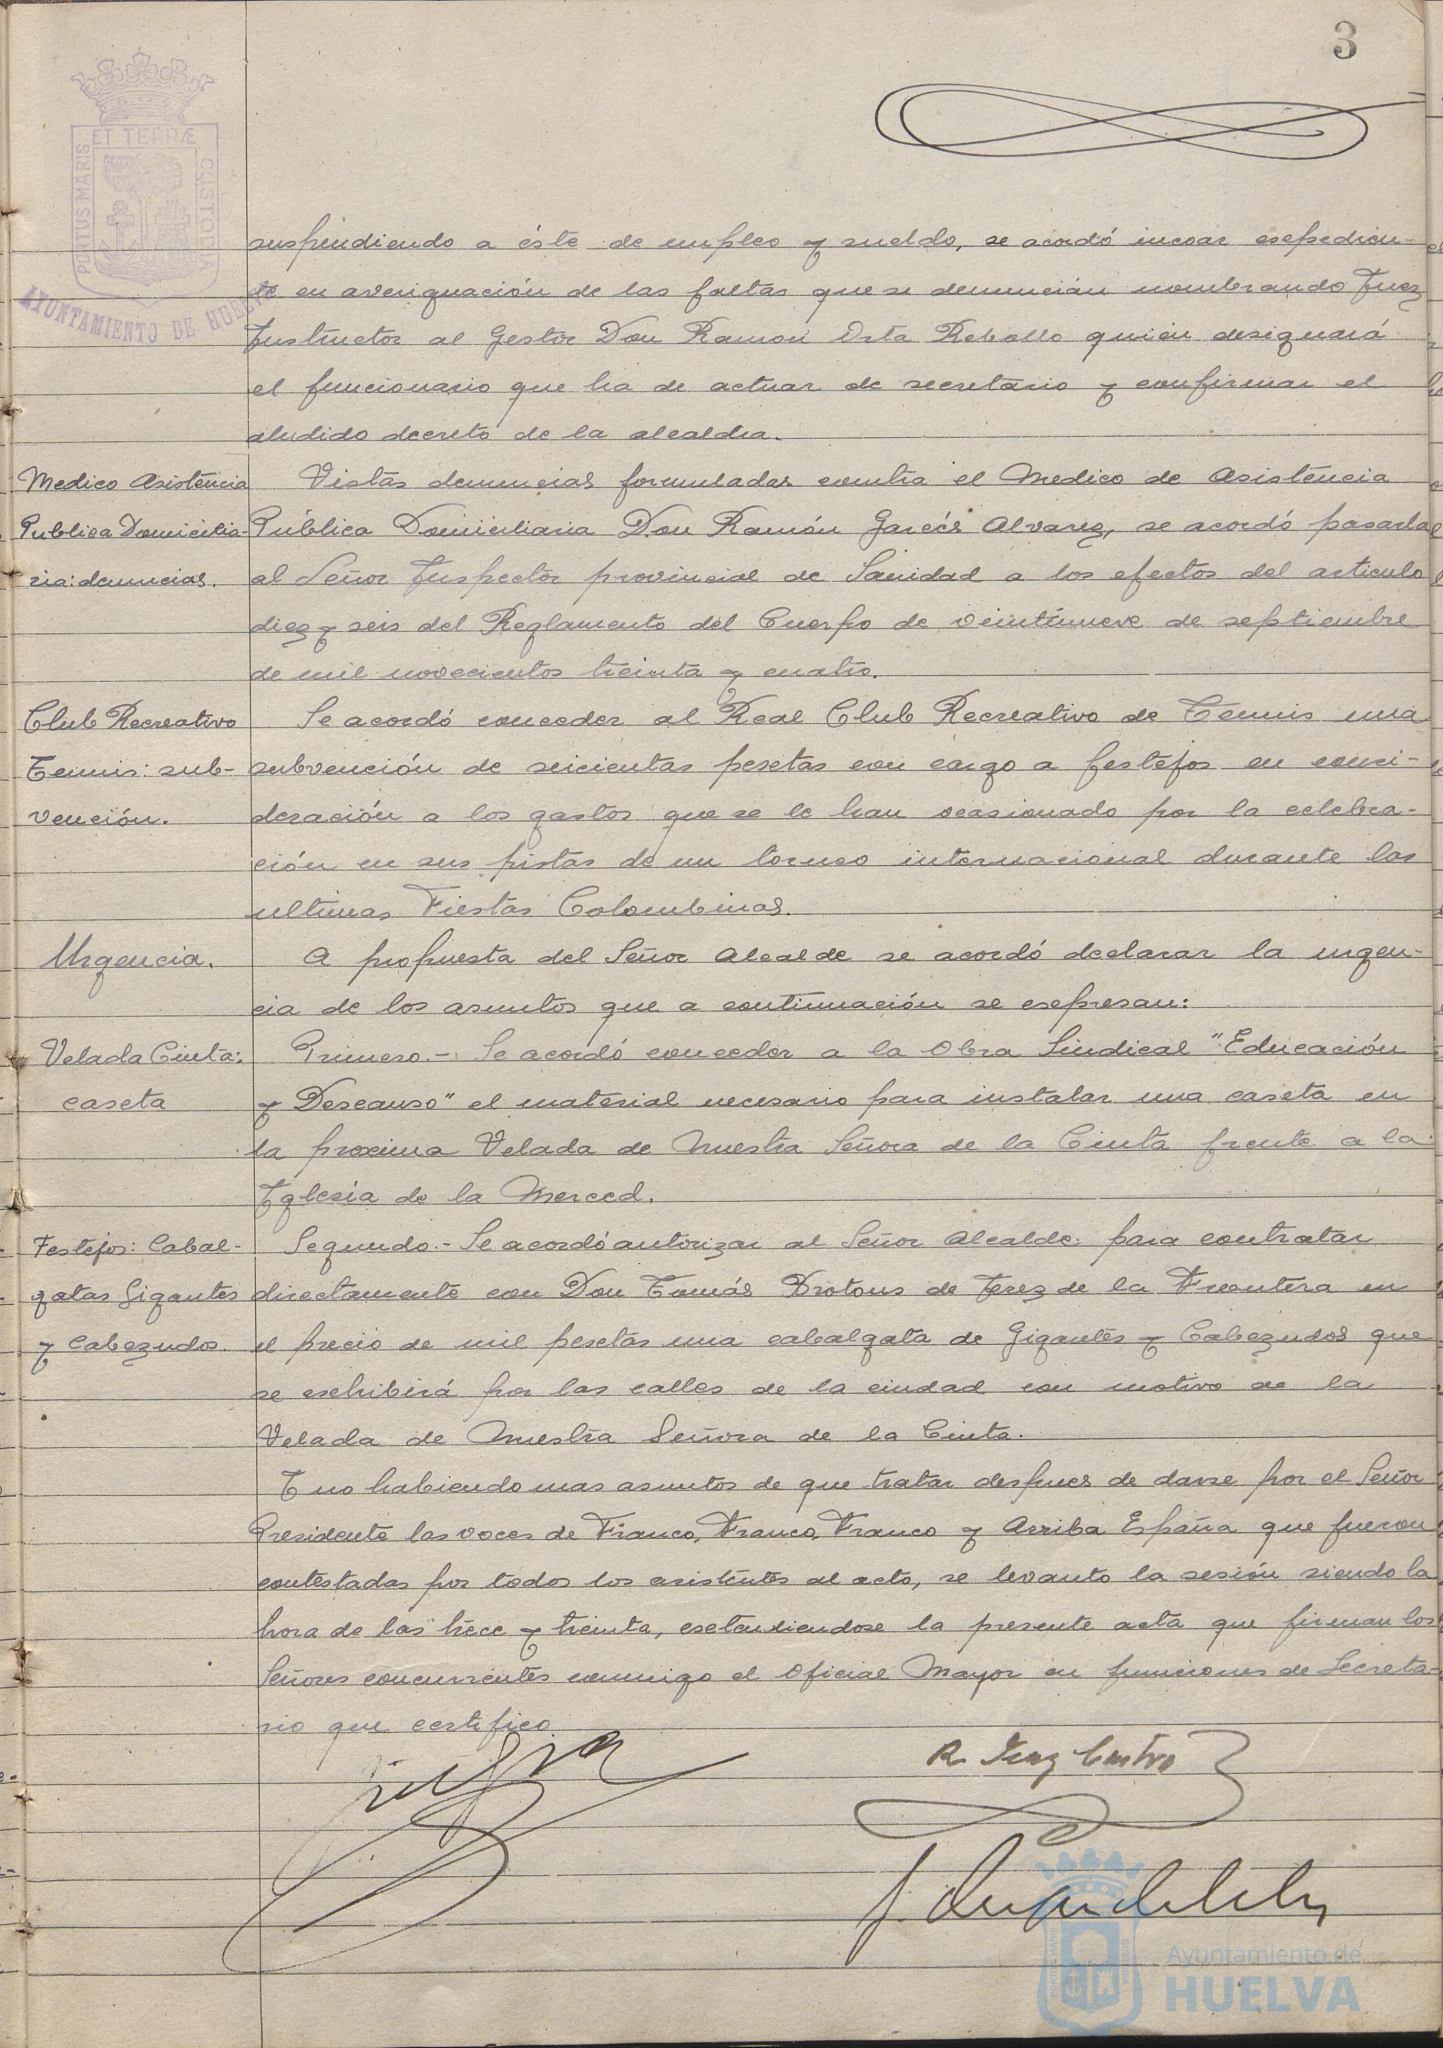 3
ET TERRÆ
PORTUS MARIS
CUSTODIA
AYUNTAMIENTO DE HUELVA
suspendiendo a éste de empleo y sueldo, se acordó incoar esepedien-
te en averiguación de las faltas que se denuncian nombrando Juez
Instructor al Gestor Don Ramon Orta Rebollo quien designará
el funcionario que ha de actuar de secretario y confirmar el
aludido decreto de la alcaldia.
Medico Asistencia
Publica Domicilia-
ria: denuncias.
Vistas denuncias formuladas contra el Medico de Asistencia
Pública Domiciliaria Don Ramón Garcés Alvarez, se acordó pasarla
al Señor Inspector provincial de Sanidad a los efectos del articulo
diez y seis del Reglamento del Cuerpo de veintinueve de septiembre
de mil novecientos treinta y cuatro.
Club Recreativo
Tennis: sub-
vención.
Se acordó conceder al Real Club Recreativo de Tennis una
subvención de seicientas pesetas con cargo a festejos en consi-
deración a los gastos que se le han ocasionado por la celebra-
ción en sus pistas de un torneo internacional durante las
ultimas Fiestas Colombinas.
Urgencia.
A propuesta del Señor Alcalde se acordó declarar la urgen-
cia de los asuntos que a continuación se esepresan:
Velada Cinta:
caseta
Primero.- Se acordó conceder a la Obra Sindical "Educación
y Descanso" el material necesario para instalar una caseta en
la proxima Velada de Nuestra Señora de la Cinta frente a la
Iglesia de la Merced.
Festejos: Cabal-
gatas Gigantes
y Cabezudos.
Segundo.- Se acordó autorizar al Señor Alcalde para contratar
directamente con Don Tomás Drotons de Jerez de la Frontera en
el precio de mil pesetas una cabalgata de Gigantes y Cabezudos que
se exhibirá por las calles de la ciudad con motivo de la
Velada de Nuestra Señora de la Cinta.
Y no habiendo mas asuntos de que tratar despues de darse por el Señor
Presidente las voces de Franco, Franco, Franco y Arriba España que fueron
contestadas por todos los asistentes al acto, se levanto la sesión siendo la
hora de las trece y treinta, esetendiendose la presente acta que firman los
Señores concurrentes conmigo el Oficial Mayor en funciones de Secreta-
rio que certifico.
Ayuntamiento de
HUELVA